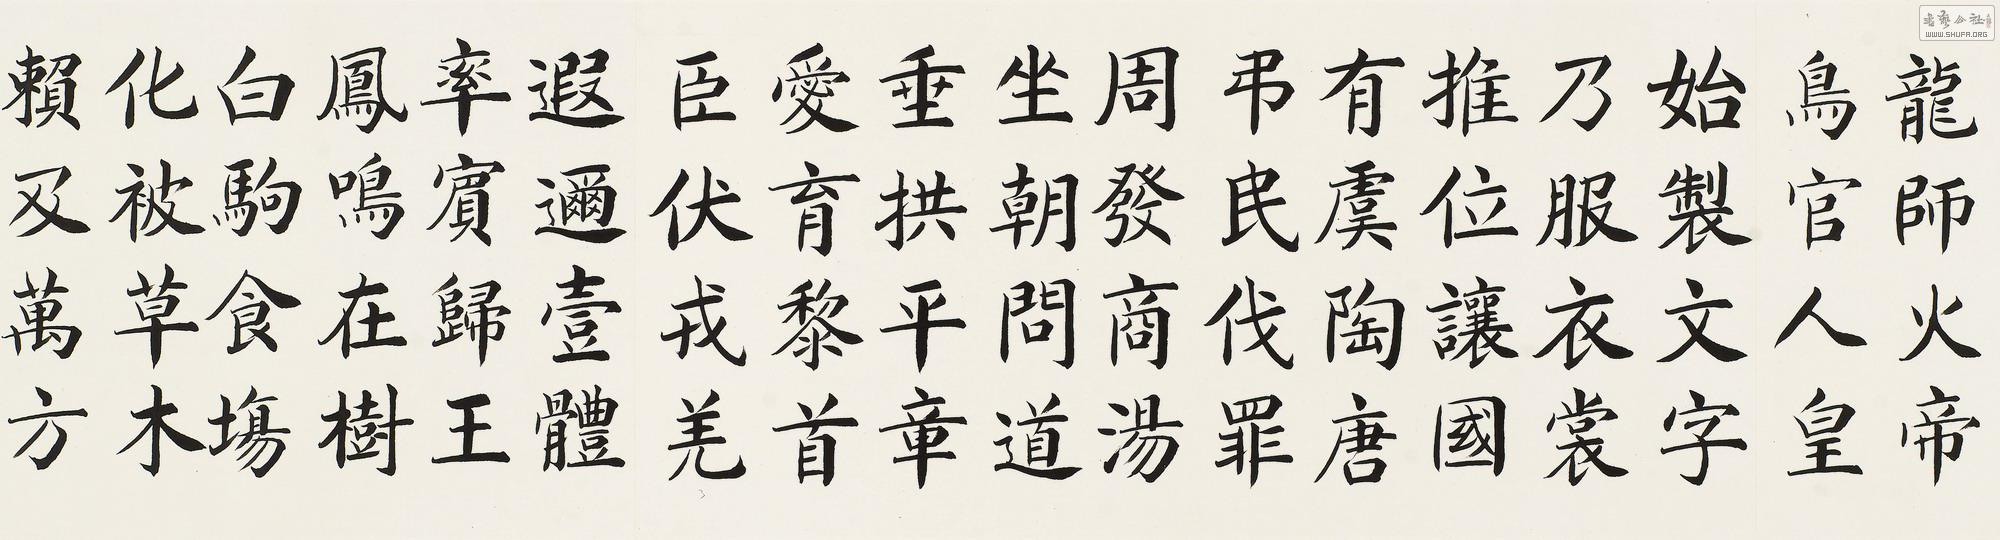 龍師火帝
鳥官人皇
始製文字
乃服衣裳
推位讓國
有虞陶唐
弔民伐罪
周發商湯
坐朝問道
垂拱平章
愛育黎首
臣伏戎羌
遐邇壹體
率賓歸王
鳳鳴在樹
白駒食場
化被草木
賴及萬方
书艺公社
WWW.SHUFA.ORG